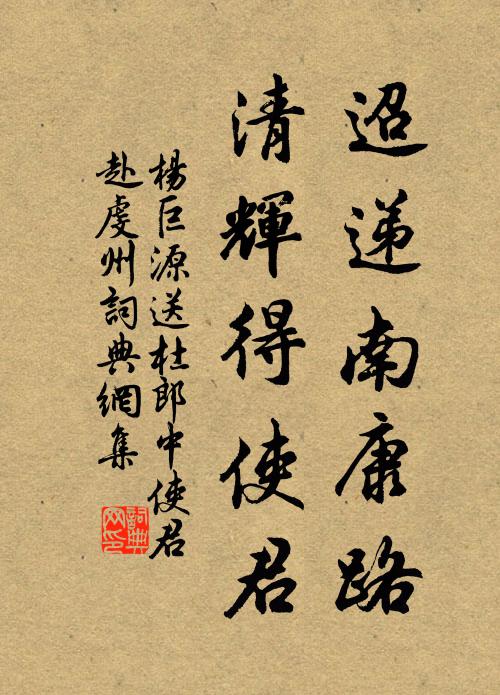 迢递南康路
清輝得使君
楊巨源送杜郎中使君
赴虔州詞典網集
詞典
网印